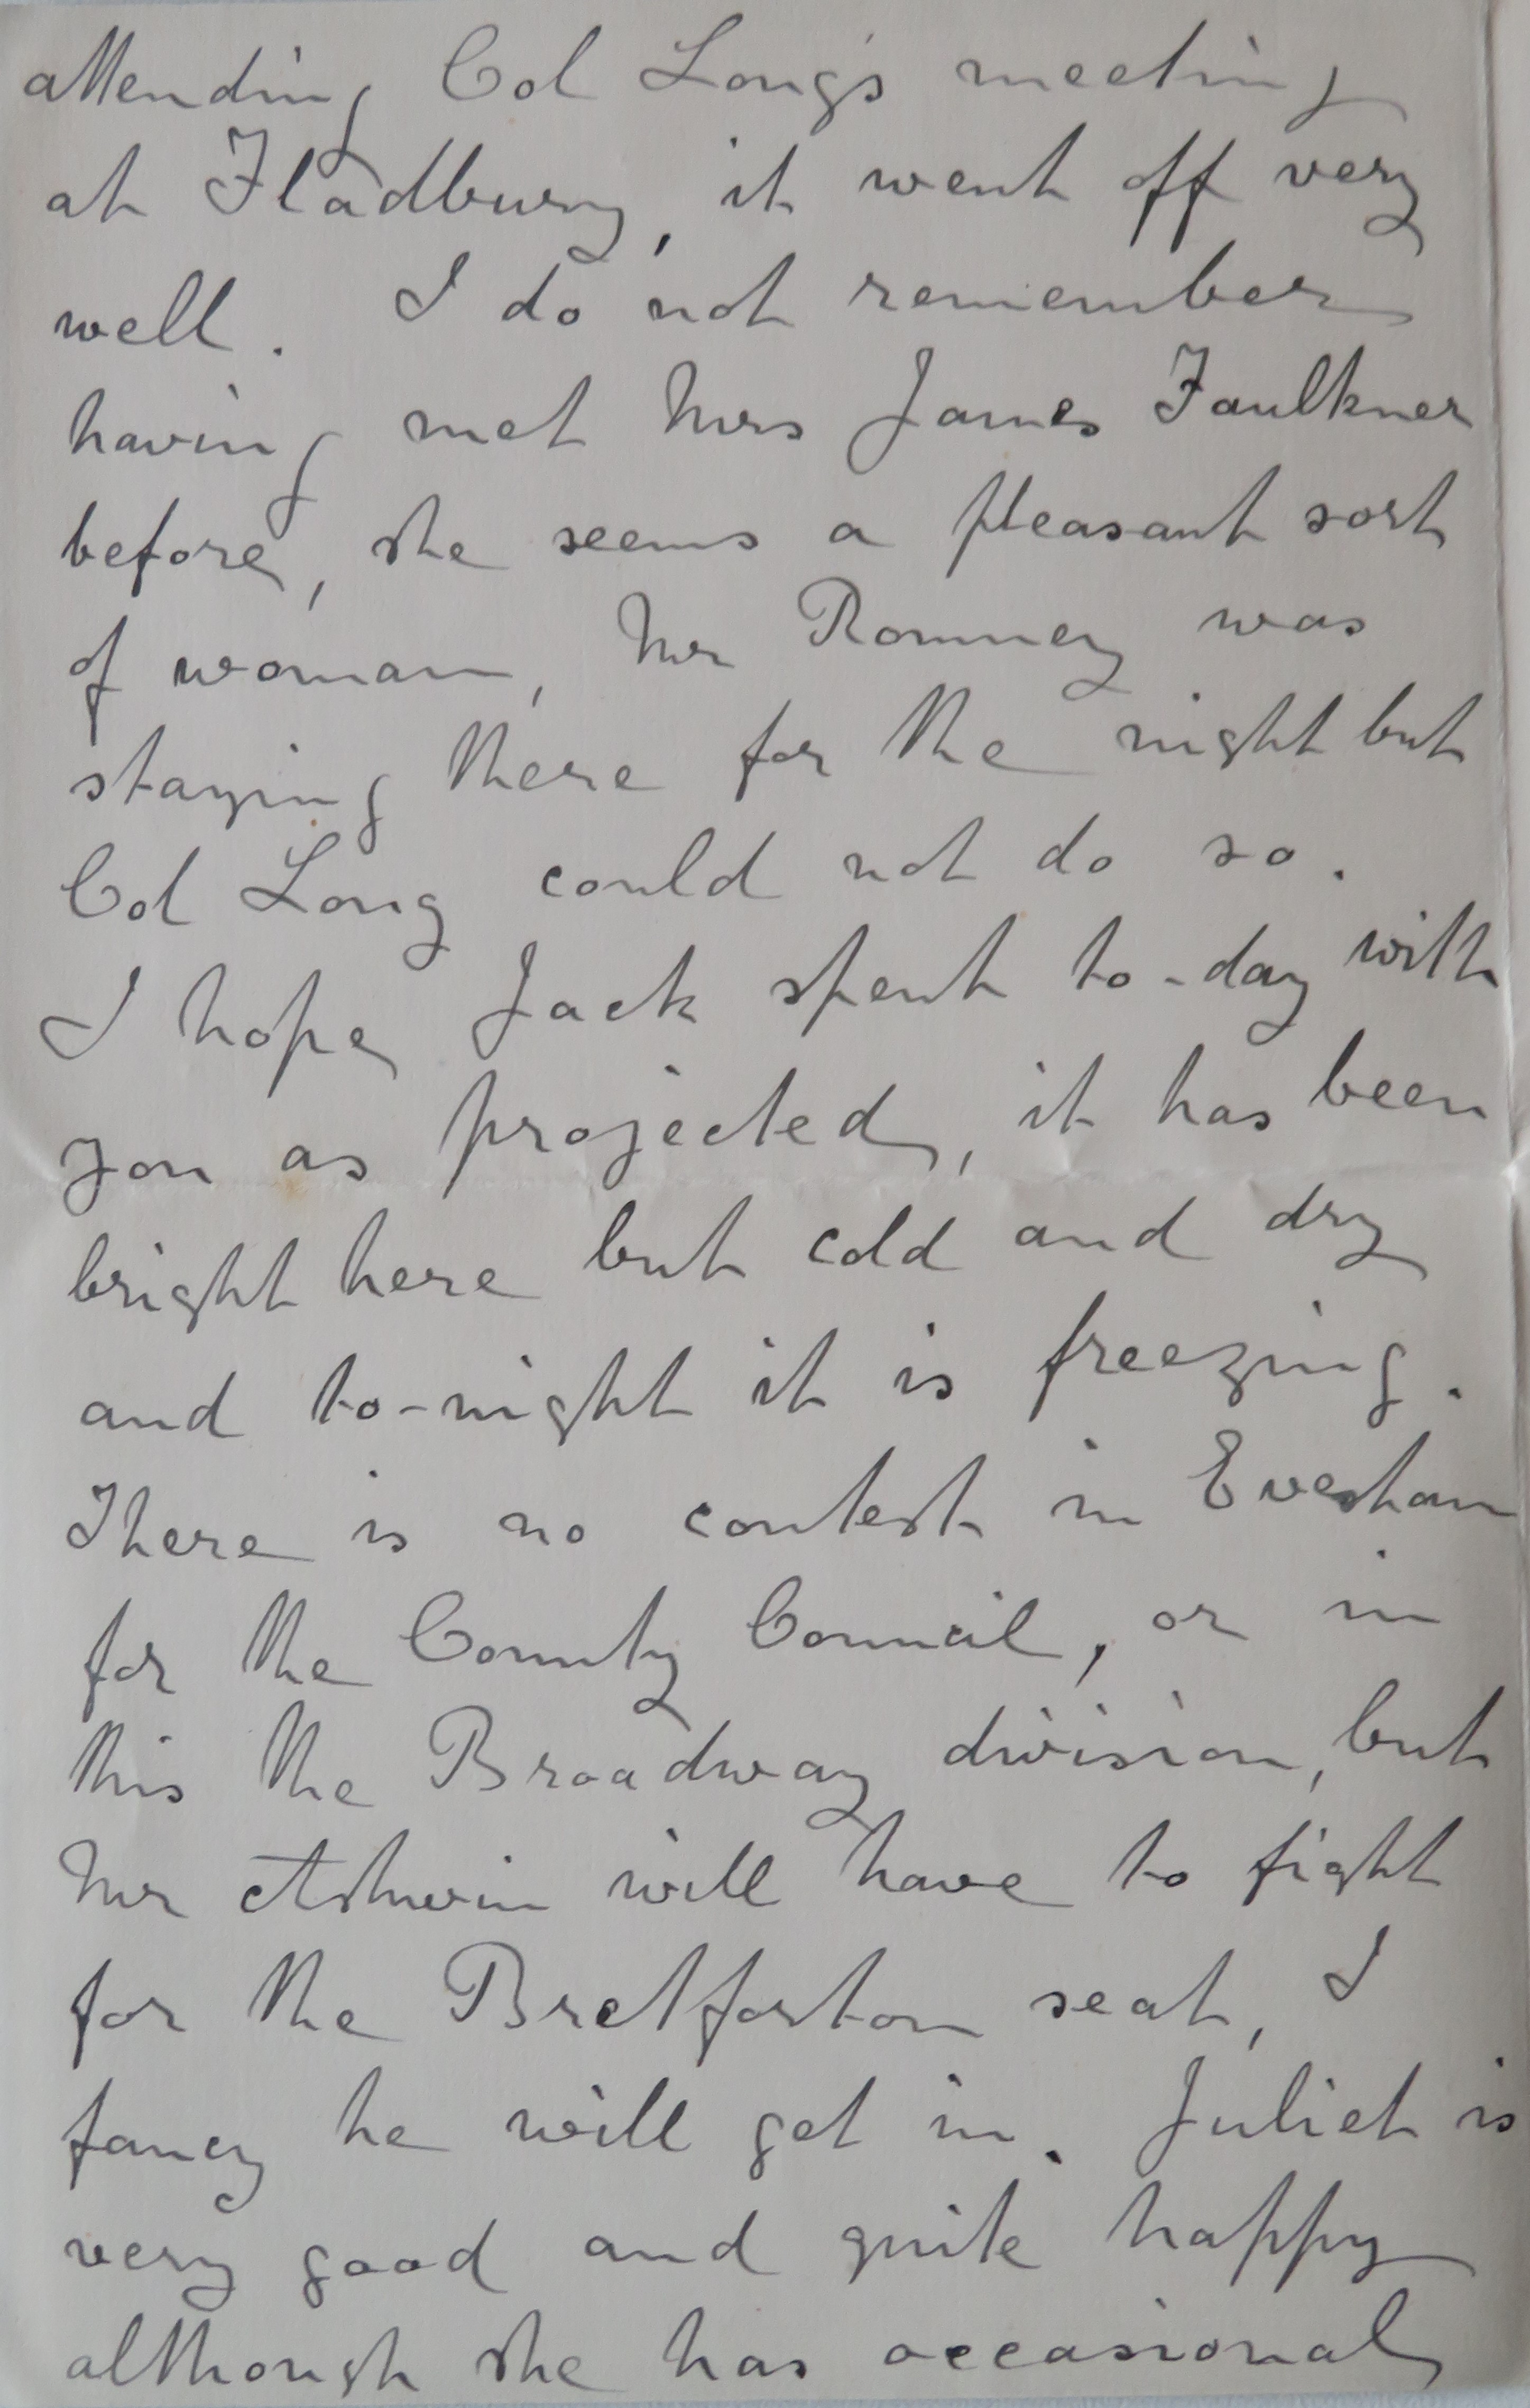 attending Col Long's meeting
at Fladbury, it went off very
well. I do not remember
having met Mrs James Faulkner
before, she seems a pleasant sort
of woman, Mr Romney was
staying there for the night but
Col Long could not do so.
I hope Jack spent to-day with
you as projected, it has been
bright here but cold and dry
and to-night it is freezing.
There is no contest in Evesham
for the County Council, or in
this the Broadway division, but
Mr Ashwin will have to fight
for the Bretforton seat, I
fancy he will get in. Juliet is
very good and quite happy
although she has occasional